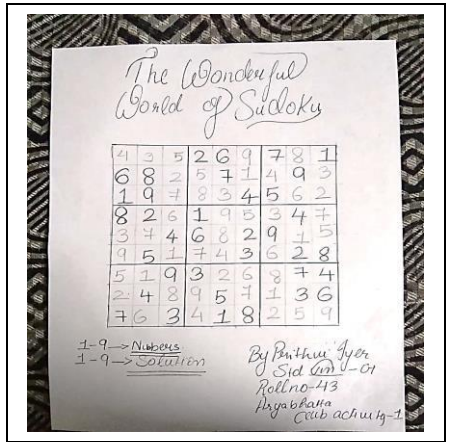 The Wonderful
World of Sudoku
4 3 5 2 6 9 7 8 1
6 8 2 5 7 1 4 9 3
1 9 7 8 3 4 5 6 2
8 2 6 1 9 5 3 4 7
3 7 4 6 8 2 9 1 5
9 5 1 7 4 3 6 2 8
5 1 9 3 2 6 8 7 4
2 4 8 9 5 7 1 3 6
7 6 3 4 1 8 2 5 9
1-9 → Numbers
1-9 → Solution
By Iyer
Std VIII-
Roll no-43
Aryabhatta
Club activity-1